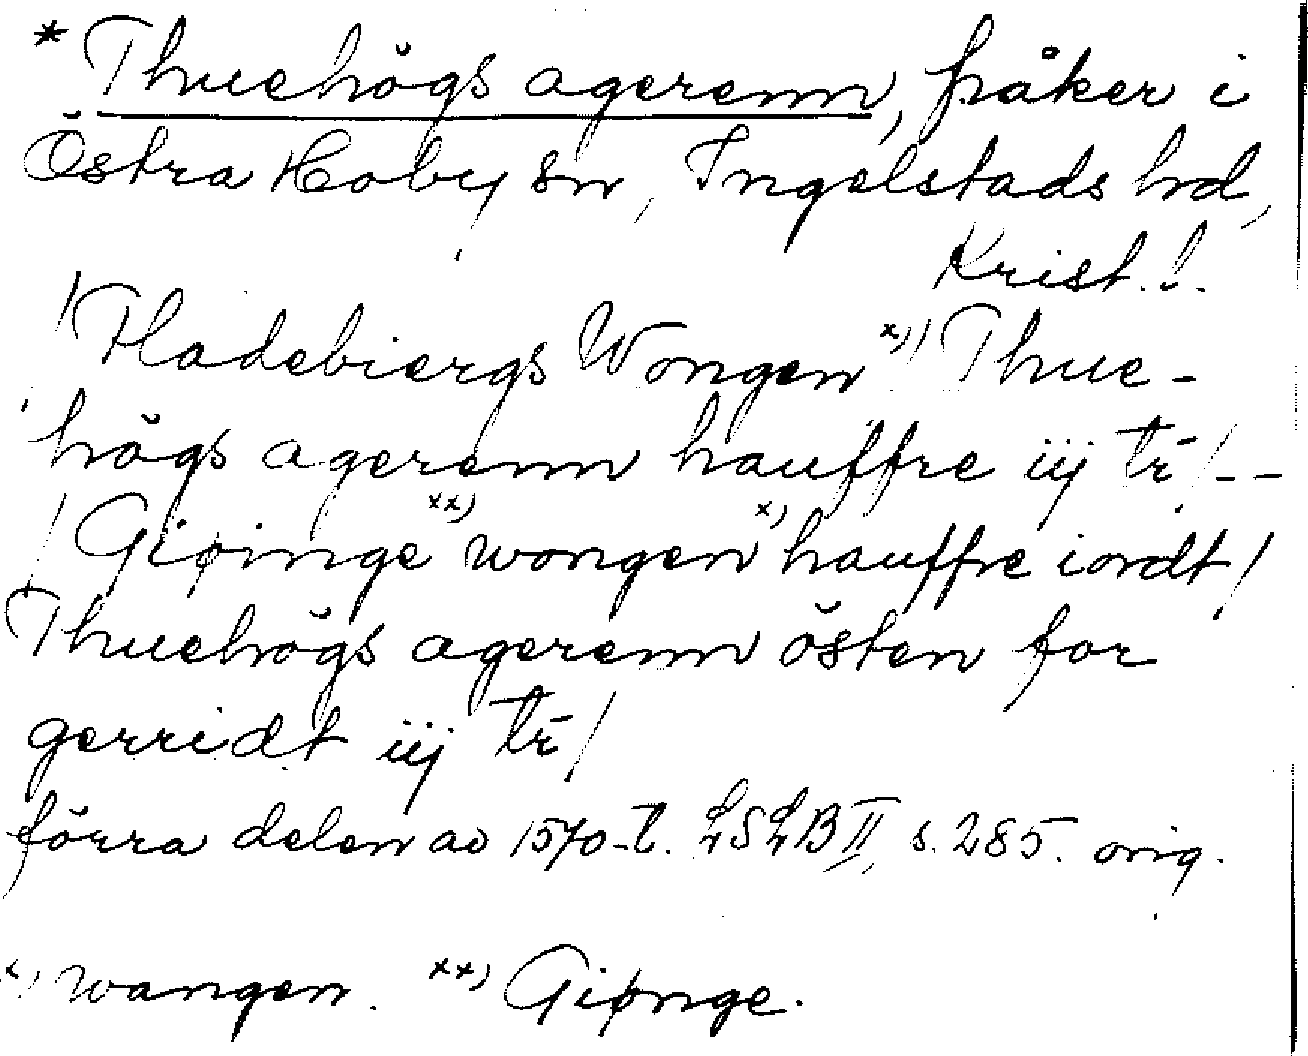 * Thuehögs agerenn, fråker i
Östra Hoby sn, Ingelstads hd,
Krist. l.
/ Fladebiergs Wongen x)/ Thue-
högs agerenn hauffre iij tr̄ /--
/ Giøinge xx) wongen x) hauffre iordt /
Thuehögs agerenn östen for
gerridt iij tr̄ /
förra delen av 1570-t. LSLB II, s. 285. orig.
x) wangen. xx) Giønge.